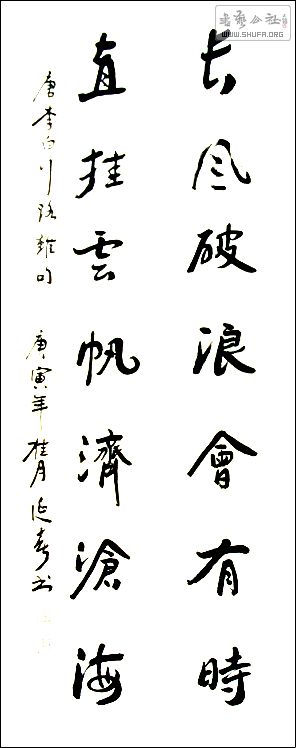 长风破浪會有時
直挂雲帆濟滄海
唐李白行路難句
庚寅年桂月延春书
書藝公社
WWW.SHUFA.ORG